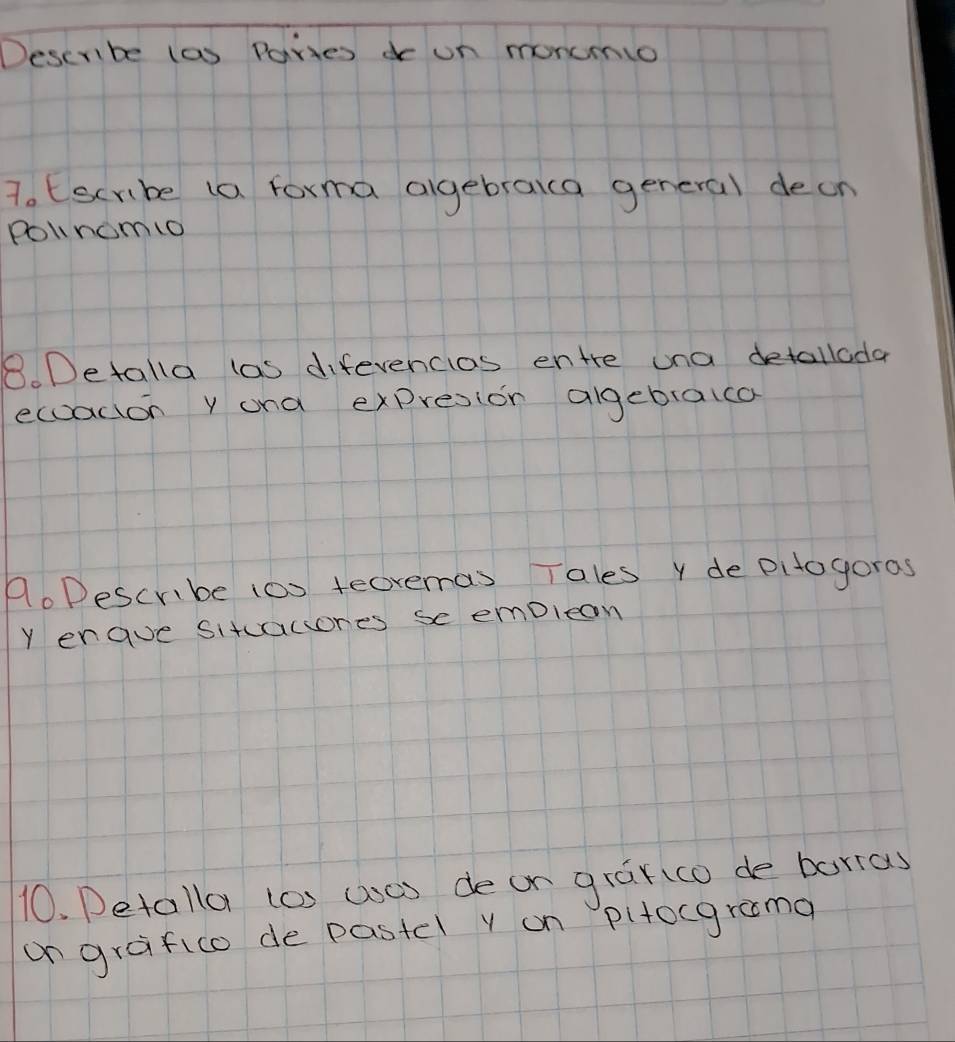 Describe las Partes de un monomio
7. Escribe la forma algebraica general de un
Polinomio
8. Detalla las diferencias entre una detallada
ecuación y una expresión algebraica
9. Describe los teoremas Tales y de pitagoras
y en que situaciones se emplean
10. Detalla los usos de un gráfico de barras
un gráfico de pastel y un pitocgrama